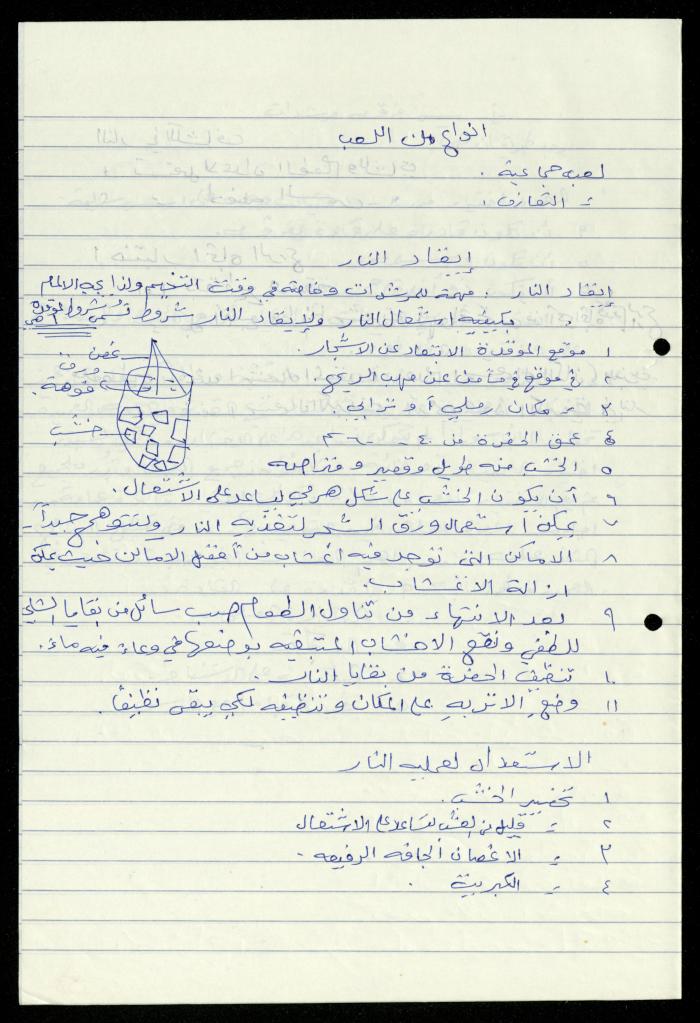 انواع من اللعب
لعبه جماعية .
= التعارف .
إيقاد النار
إيقاد النار : مهمة للمرشدات وخاصة في وقت التخيم ولذا يجب الالمام
بكيفية اشتعال النار ولإيقاد النار شروط تسمى شروط الموقدة وهي
١ موقع الموقدة الابتعاد عن الاشجار .
٢ في موقع في مأمن عن مهب الريح .
٣ = مكان رملي أو ترابي .
٤ عمق الحفرة من ٤٠ - ٦٠ سم
٥ الخشب منه طويل وقصير ومتراصه
٦ أن يكون الخشب على شكل هرمي ليساعد على الأشتعال .
٧ يمكن استعمال ورق الشجر لتغذيه النار ولتتوهج جيداً -
٨ الاماكن التى توجد فيه اعشاب من أفضل الاماكن حيث يمكن
ازالة الاعشاب .
٩ بعد الانتهاء من تناول الطعام صب سائل من بقايا الشاي
للطفي ونقع الاخشاب المتبقيه بوضعها في وعاء فيه ماء .
١٠ تنظيف الحفرة من بقايا النار .
١١ وضع الاتربه على المكان وتنظيفه لكي يبقى نظيفاً .
غصن
ورق
فوهة
خشب
الاستعداد لعمليه النار
١ تحضير الخشب .
٢ = قليل من القش ليساعد على الاشتعال
٣ = الاغصان الجافه الرفيعه .
٤ = الكبريت .